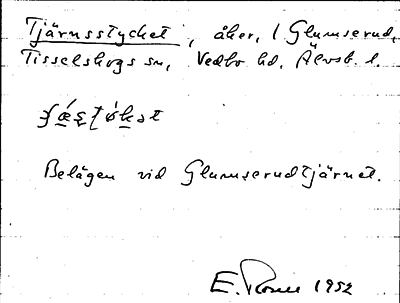 Tjärnsstycket, åker, 1 Glumserud,
Tisselskogs sn, Vedbo hd, Älvsb. l.
Belägen vid Glumserudtjärnet.
E. 1952